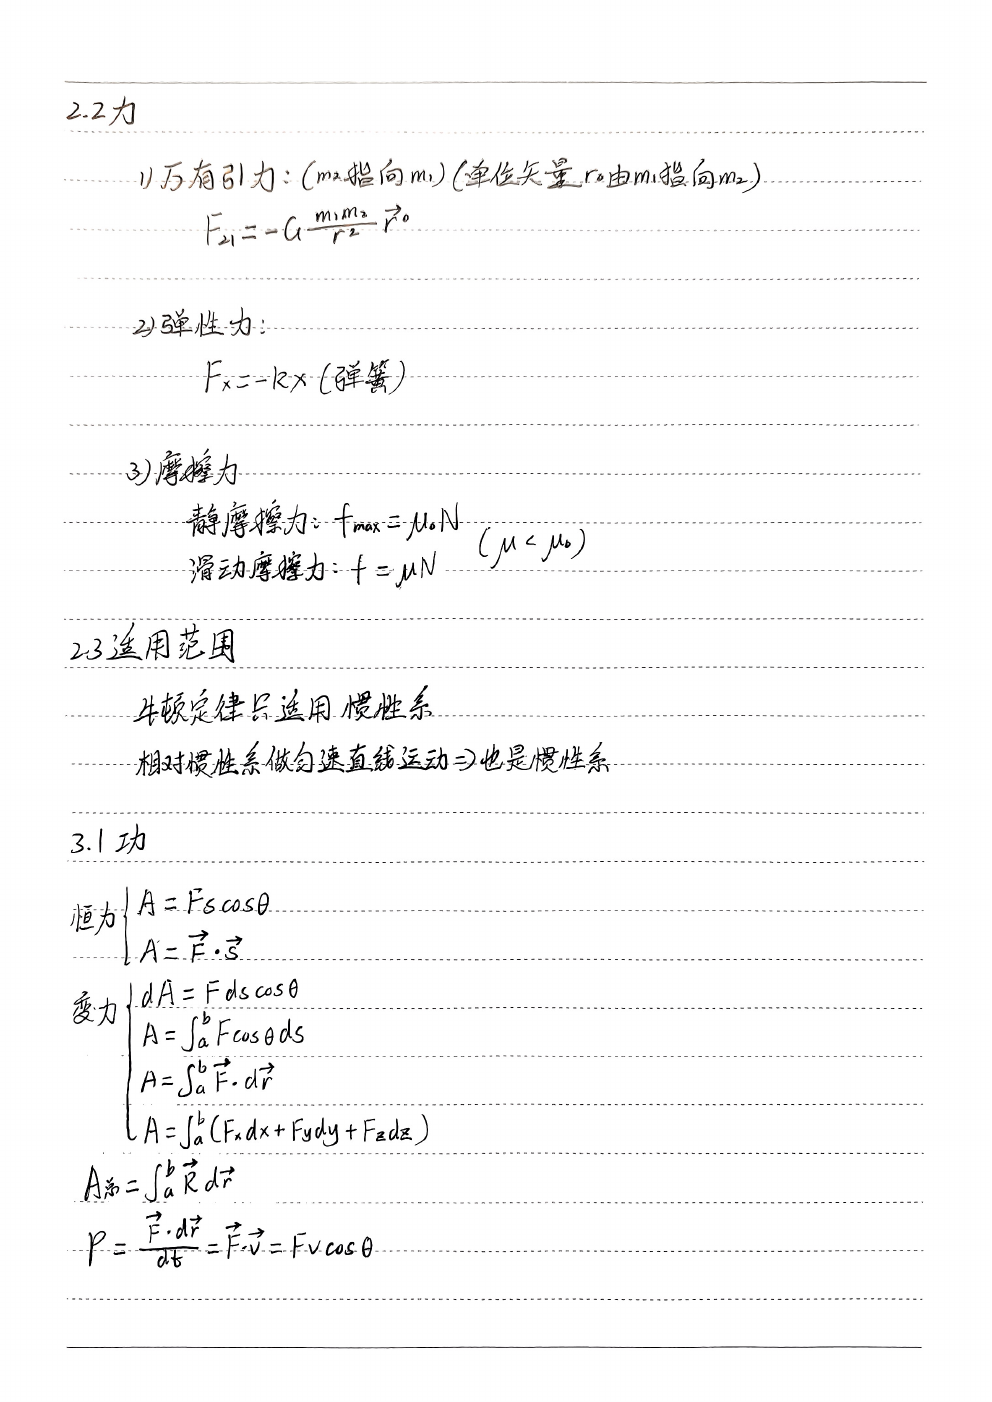 2.2力
1)万有引力:(m₂指向m₁)(单位矢量r₀由m₁指向m₂)
F₂₁=-G m₁m₂/r² r⃗⁰
2)弹性力:
Fₓ=-kx(弹簧)
3)摩擦力
静摩擦力:fmax=μ₀N
(μ<μ₀)
滑动摩擦力:f=μN
2.3适用范围
牛顿定律只适用惯性系
相对惯性系做匀速直线运动=)也是惯性系
3.1功
恒力{A=Fscosθ
A=F⃗·s⃗
变力{dA=Fdscosθ
A=∫ₐᵇFcosθds
A=∫ₐᵇF⃗·dr⃗
A=∫ₐᵇ(Fₓdx+Fydy+Fzdz)
A总=∫ₐᵇR⃗dr⃗
P=F⃗·dr⃗/dt=F⃗·v⃗=Fvcosθ